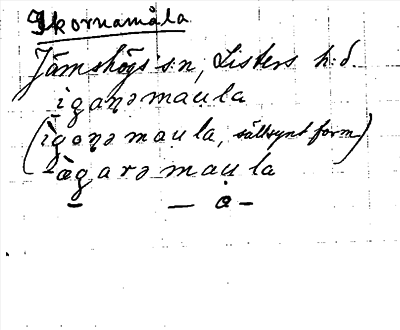 Ikornamåla
Jämshögs s:n, Listers h:d
ìganəmau̯la
(ìganəmau̯la, sällsynt form)
ægarəmau̯la
— — a —